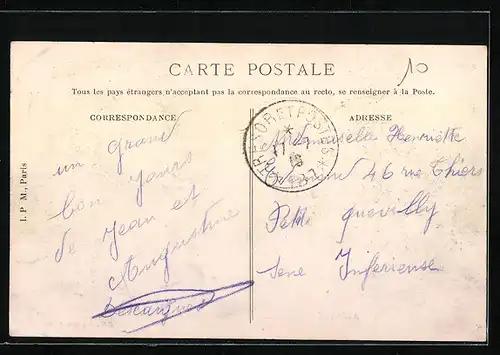 CARTE POSTALE
10
Tous les pays étrangers n'acceptant pas la correspondance au recto, se renseigner à la Poste.
CORRESPONDANCE
ADRESSE
I. P. M., Paris
un grand
bon jours
de Jean et
Augustine
TRESOR ET POSTES
* 137 *
Mademoiselle Henriette
46 rue Thiers
Petit quevilly
Sene Inferieuse